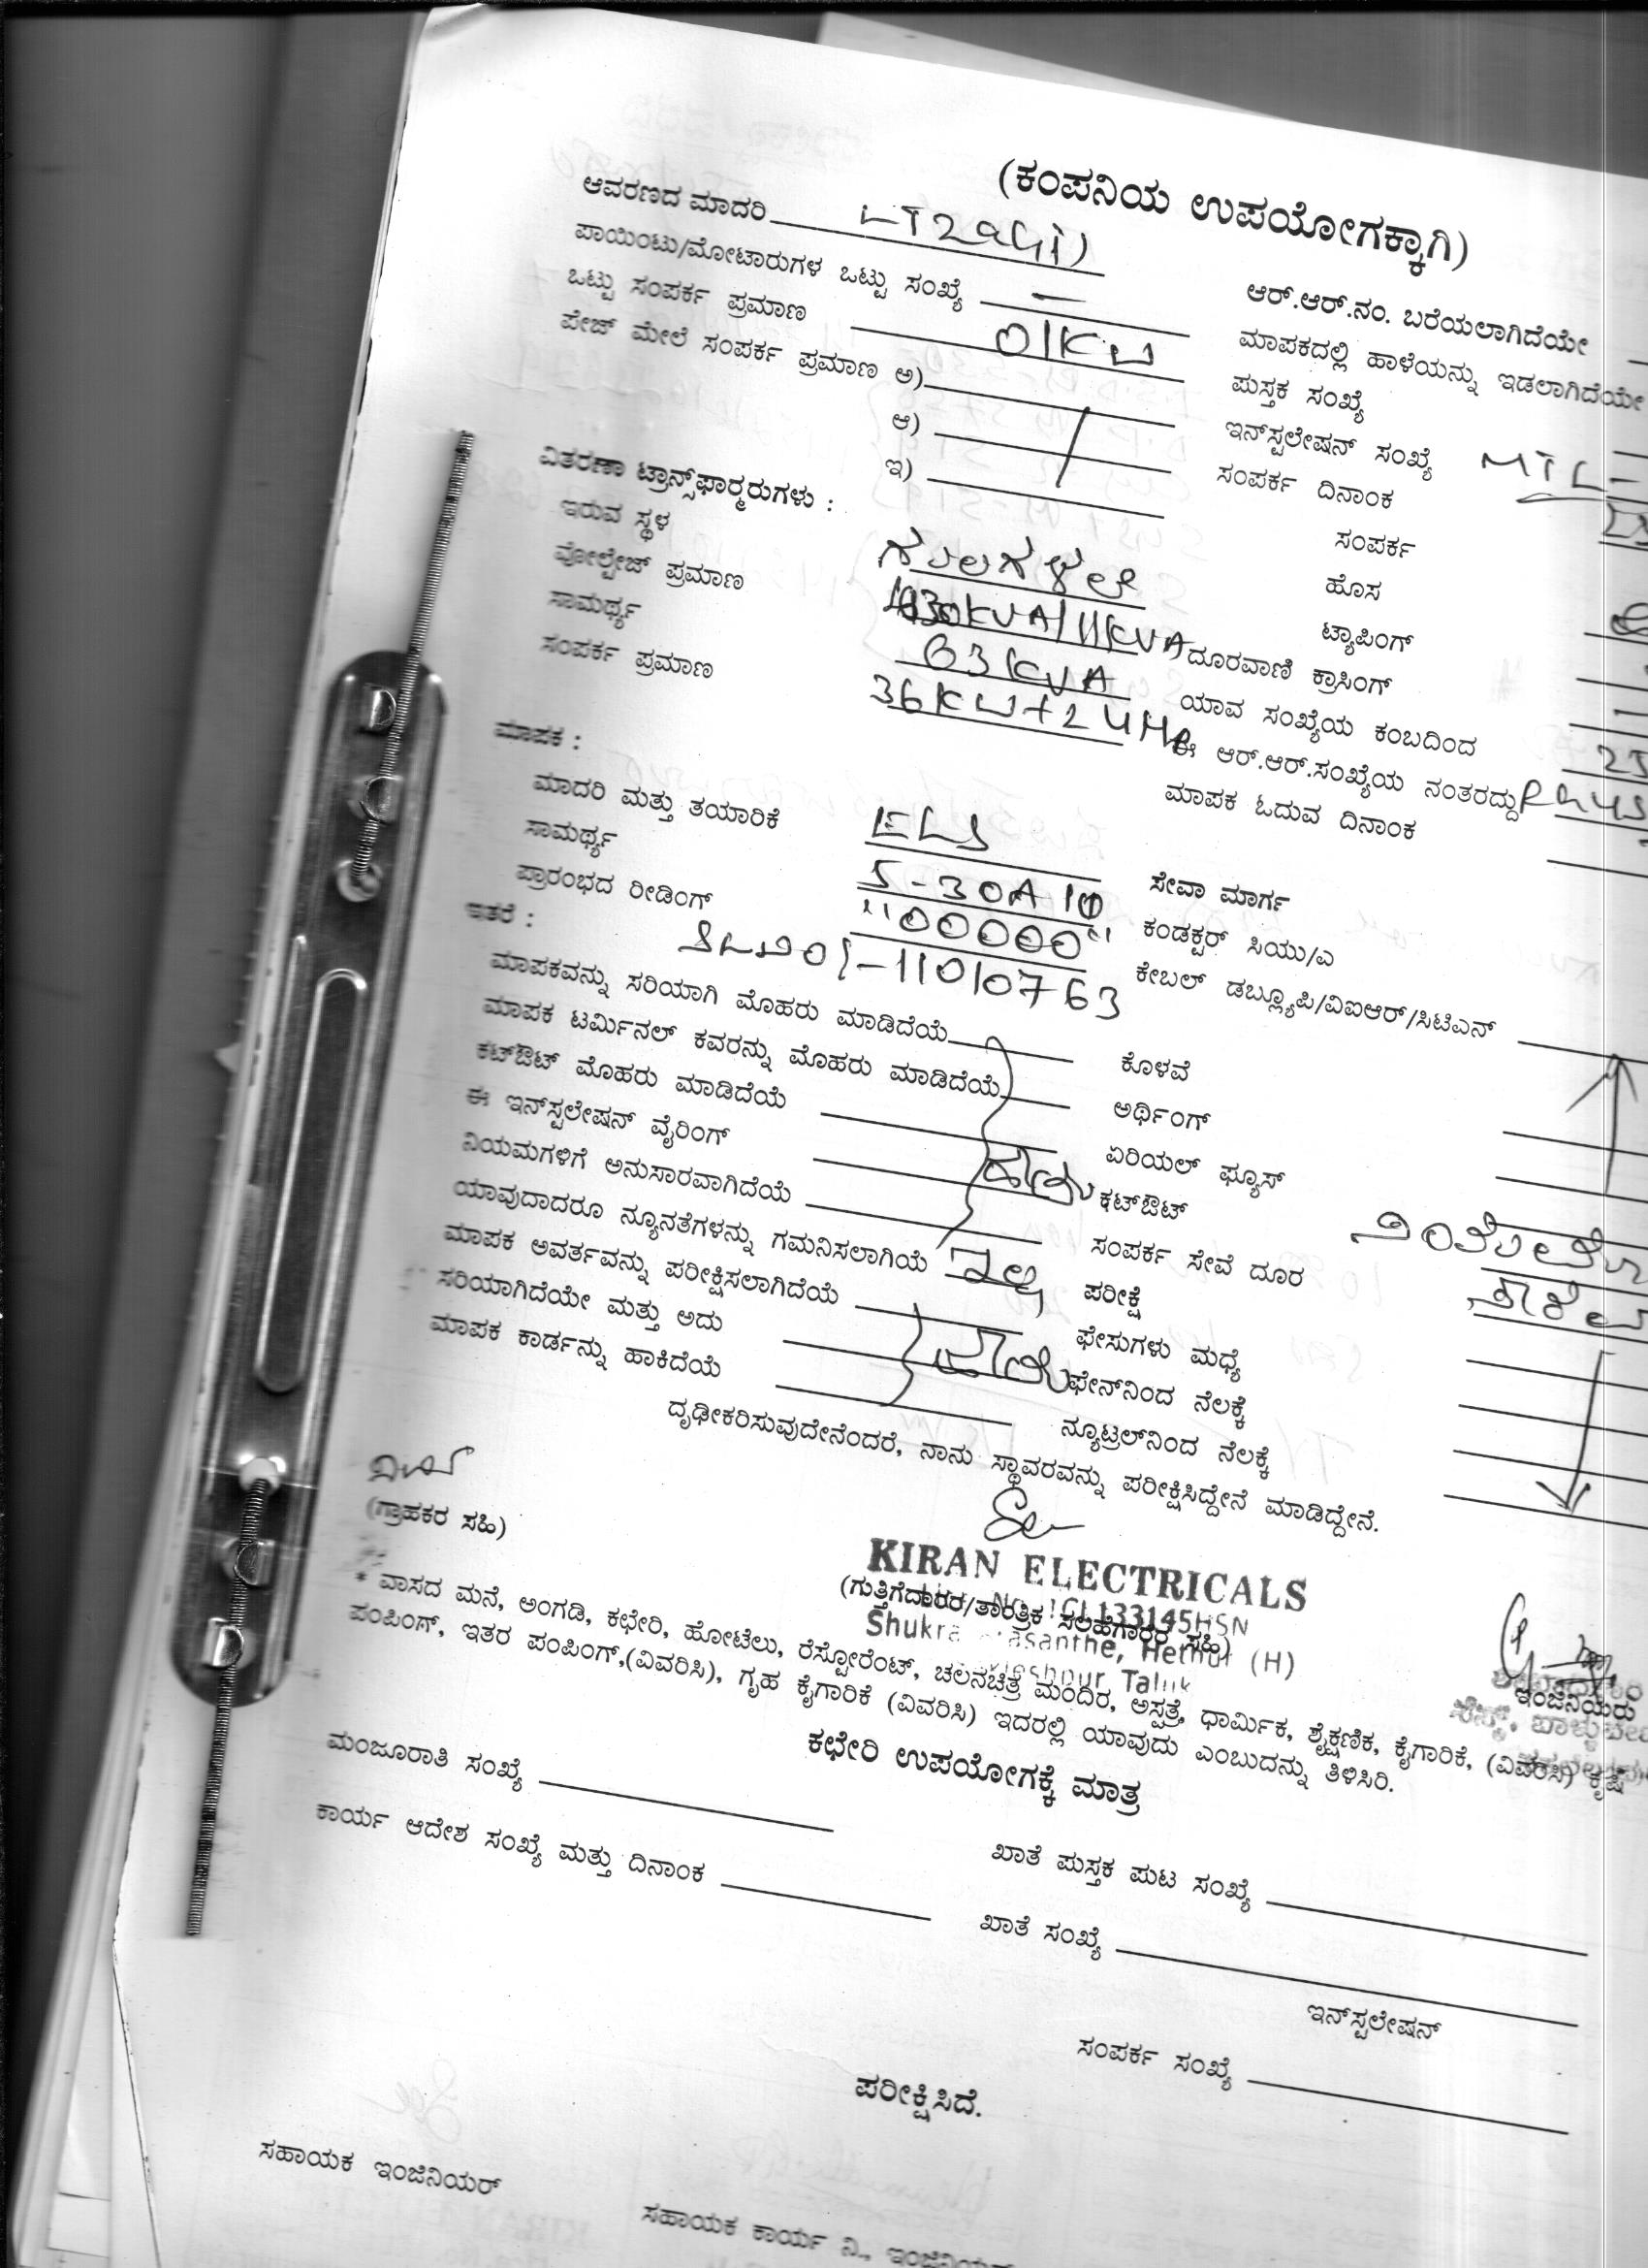 (ಕಂಪನಿಯ ಉಪಯೋಗಕ್ಕಾಗಿ)
ಆವರಣದ ಮಾದರಿ LT2a(i)
ಪಾಯಿಂಟು/ಮೋಟಾರುಗಳ ಒಟ್ಟು ಸಂಖ್ಯೆ —
ಒಟ್ಟು ಸಂಪರ್ಕ ಪ್ರಮಾಣ 01KW
ಪೇಜ್ ಮೇಲೆ ಸಂಪರ್ಕ ಪ್ರಮಾಣ ಅ)
ಆ)
ಇ)
ವಿತರಣಾ ಟ್ರಾನ್ಸ್‌ಫಾರ್‍ಮರುಗಳು :
ಇರುವ ಸ್ಥಳ
ವೋಲ್ಟೇಜ್ ಪ್ರಮಾಣ 11KVA
ಸಾಮರ್ಥ್ಯ 63KVA
ಸಂಪರ್ಕ ಪ್ರಮಾಣ 36KW+24HP
ಮಾಪಕ :
ಮಾದರಿ ಮತ್ತು ತಯಾರಿಕೆ
ಸಾಮರ್ಥ್ಯ 5-30A 1Φ
ಪ್ರಾರಂಭದ ರೀಡಿಂಗ್ "00000"
ಇತರೆ : -11010763
ಮಾಪಕವನ್ನು ಸರಿಯಾಗಿ ಮೊಹರು ಮಾಡಿದೆಯೆ
ಮಾಪಕ ಟರ್ಮಿನಲ್ ಕವರನ್ನು ಮೊಹರು ಮಾಡಿದೆಯೆ
ಕಟ್‌ಔಟ್ ಮೊಹರು ಮಾಡಿದೆಯೆ
ಈ ಇನ್‌ಸ್ಟಲೇಷನ್ ವೈರಿಂಗ್
ನಿಯಮಗಳಿಗೆ ಅನುಸಾರವಾಗಿದೆಯೆ
ಯಾವುದಾದರೂ ನ್ಯೂನತೆಗಳನ್ನು ಗಮನಿಸಲಾಗಿಯೆ ಇಲ್ಲ
ಮಾಪಕ ಅವರ್ತವನ್ನು ಪರೀಕ್ಷಿಸಲಾಗಿದೆಯೆ
ಸರಿಯಾಗಿದೆಯೇ ಮತ್ತು ಅದು
ಮಾಪಕ ಕಾರ್ಡನ್ನು ಹಾಕಿದೆಯೆ
ಆರ್.ಆರ್.ನಂ. ಬರೆಯಲಾಗಿದೆಯೇ
ಮಾಪಕದಲ್ಲಿ ಹಾಳೆಯನ್ನು ಇಡಲಾಗಿದೆಯೇ
ಪುಸ್ತಕ ಸಂಖ್ಯೆ
ಇನ್‌ಸ್ಟಲೇಷನ್ ಸಂಖ್ಯೆ MTL
ಸಂಪರ್ಕ ದಿನಾಂಕ
ಸಂಪರ್ಕ
ಹೊಸ
ಟ್ಯಾಪಿಂಗ್
ದೂರವಾಣಿ ಕ್ರಾಸಿಂಗ್
ಯಾವ ಸಂಖ್ಯೆಯ ಕಂಬದಿಂದ
ಈ ಆರ್.ಆರ್.ಸಂಖ್ಯೆಯ ನಂತರದ್ದು
ಮಾಪಕ ಓದುವ ದಿನಾಂಕ
ಸೇವಾ ಮಾರ್ಗ
ಕಂಡಕ್ಟರ್ ಸಿಯು/ಎ
ಕೇಬಲ್ ಡಬ್ಲ್ಯೂಪಿ/ವಿಐಆರ್/ಸಿಟಿಎನ್
ಕೊಳವೆ
ಅರ್ಥಿಂಗ್
ಏರಿಯಲ್ ಫ್ಯೂಸ್
ಕಟ್‌ಔಟ್
ಸಂಪರ್ಕ ಸೇವೆ ದೂರ
ಪರೀಕ್ಷೆ
ಫೇಸುಗಳು ಮಧ್ಯೆ
ಫೇನ್‌ನಿಂದ ನೆಲಕ್ಕೆ
ನ್ಯೂಟ್ರಲ್‌ನಿಂದ ನೆಲಕ್ಕೆ
ದೃಢೀಕರಿಸುವುದೇನೆಂದರೆ, ನಾನು ಸ್ಥಾವರವನ್ನು ಪರೀಕ್ಷಿಸಿದ್ದೇನೆ ಮಾಡಿದ್ದೇನೆ.
(ಗ್ರಾಹಕರ ಸಹಿ)
KIRAN ELECTRICALS
(ಗುತ್ತಿಗೆದಾರರ/ತಾಂತ್ರಿಕ ಸಲಹೆಗಾರರ ಸಹಿ)
133145HSN
Hethur (H)
Taluk
ಇಂಜಿನಿಯರು
* ವಾಸದ ಮನೆ, ಅಂಗಡಿ, ಕಛೇರಿ, ಹೋಟೆಲು, ರೆಸ್ಟೋರೆಂಟ್, ಚಲನಚಿತ್ರ ಮಂದಿರ, ಅಸ್ಪತ್ರೆ, ಧಾರ್ಮಿಕ, ಶೈಕ್ಷಣಿಕ, ಕೈಗಾರಿಕೆ, (ವಿವರಿಸಿ) ಕೃಷಿ
ಪಂಪಿಂಗ್, ಇತರ ಪಂಪಿಂಗ್,(ವಿವರಿಸಿ), ಗೃಹ ಕೈಗಾರಿಕೆ (ವಿವರಿಸಿ) ಇದರಲ್ಲಿ ಯಾವುದು ಎಂಬುದನ್ನು ತಿಳಿಸಿರಿ.
ಕಛೇರಿ ಉಪಯೋಗಕ್ಕೆ ಮಾತ್ರ
ಮಂಜೂರಾತಿ ಸಂಖ್ಯೆ
ಖಾತೆ ಪುಸ್ತಕ ಪುಟ ಸಂಖ್ಯೆ
ಕಾರ್ಯ ಆದೇಶ ಸಂಖ್ಯೆ ಮತ್ತು ದಿನಾಂಕ
ಖಾತೆ ಸಂಖ್ಯೆ
ಇನ್‌ಸ್ಟಲೇಷನ್
ಸಂಪರ್ಕ ಸಂಖ್ಯೆ
ಪರೀಕ್ಷಿಸಿದೆ.
ಸಹಾಯಕ ಇಂಜಿನಿಯರ್
ಸಹಾಯಕ ಕಾರ್ಯ ನಿ., ಇಂಜಿನಿಯರ್